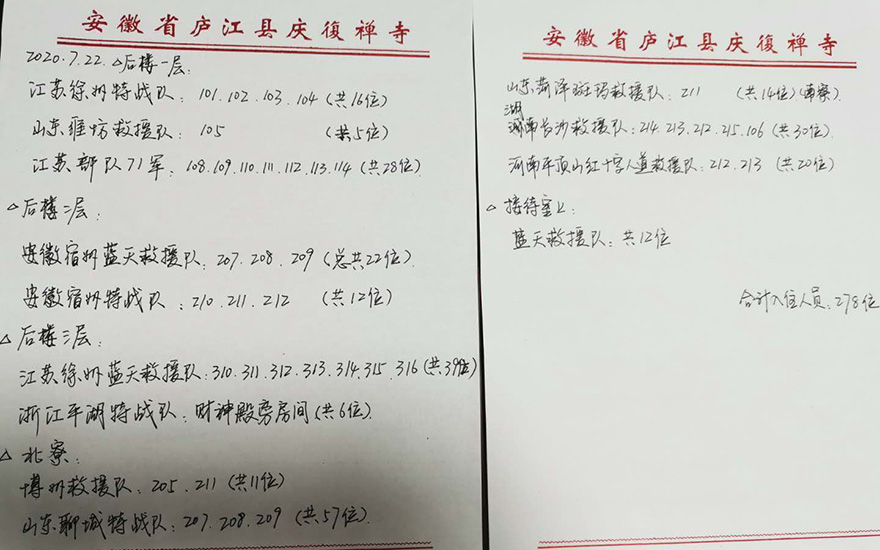 安徽省庐江县庆復禅寺
2020.7.22.△后楼一层:
江苏徐州特战队: 101.102.103.104 (共16位)
山东潍坊救援队: 105 (共5位)
江苏部队71军: 108.109.110.111.112.113.114 (共28位)
△后楼二层:
安徽宿州蓝天救援队: 207.208.209 (总共22位)
安徽宿州特战队: 210.211.212 (共12位)
△后楼三层:
江苏徐州蓝天救援队:310.311.312.313.314.315.316(共39位)
浙江平湖特战队: 财神殿旁房间(共6位)
△北寮:
博州救援队: 205.211 (共11位)
山东聊城特战队: 207.208.209 (共57位)
安徽省庐江县庆復禅寺
山东菏泽斑玛救援队: 211 (共14位)(西寮)
湖南长沙救援队: 214.213.212.215.106 (共30位)
河南平顶山红十字人道救援队: 212.213 (共20位)
△接待室上:
蓝天救援队: 共12位
合计入住人员: 278位